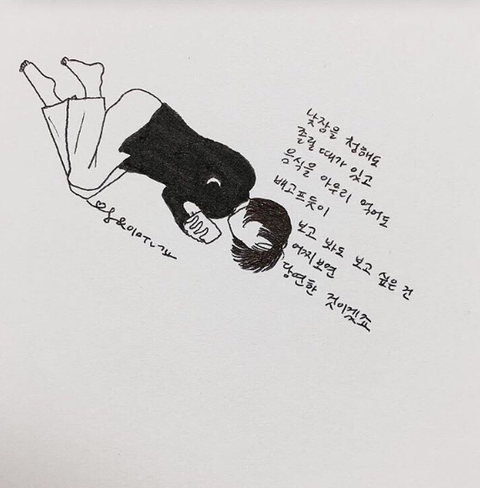 낮잠을 청해도
졸릴 때가 있고
음식을 아무리 먹어도
배고프듯이
보고 봐도 보고 싶은 건
어찌보면
당연한 것이겠죠